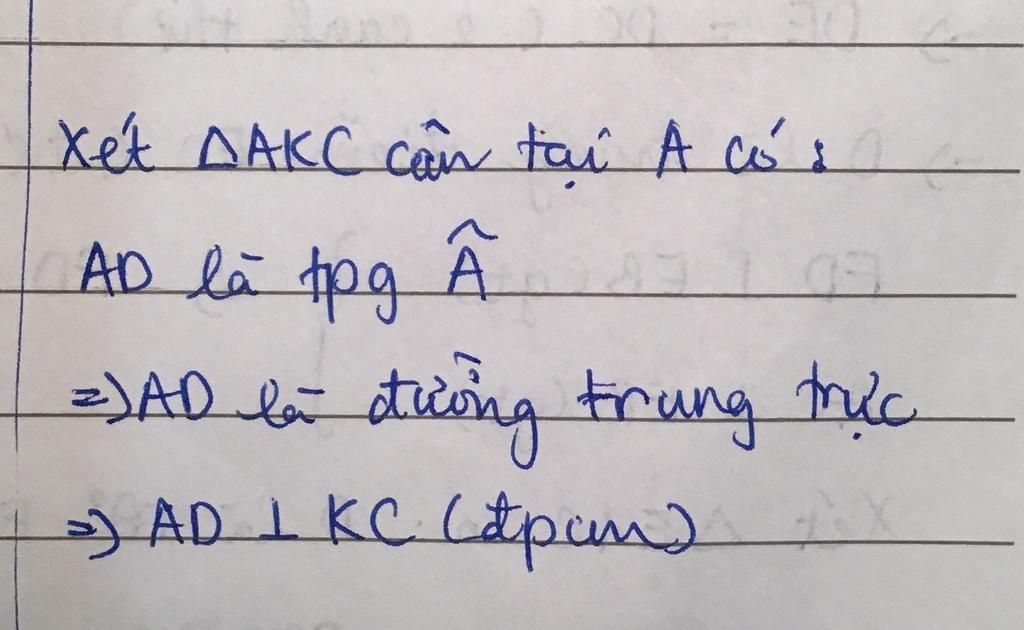 Xét ΔAKC cân tại A có:
AD là tpg Â
=> AD là đường trung trực
=> AD ⊥ KC (đpcm)